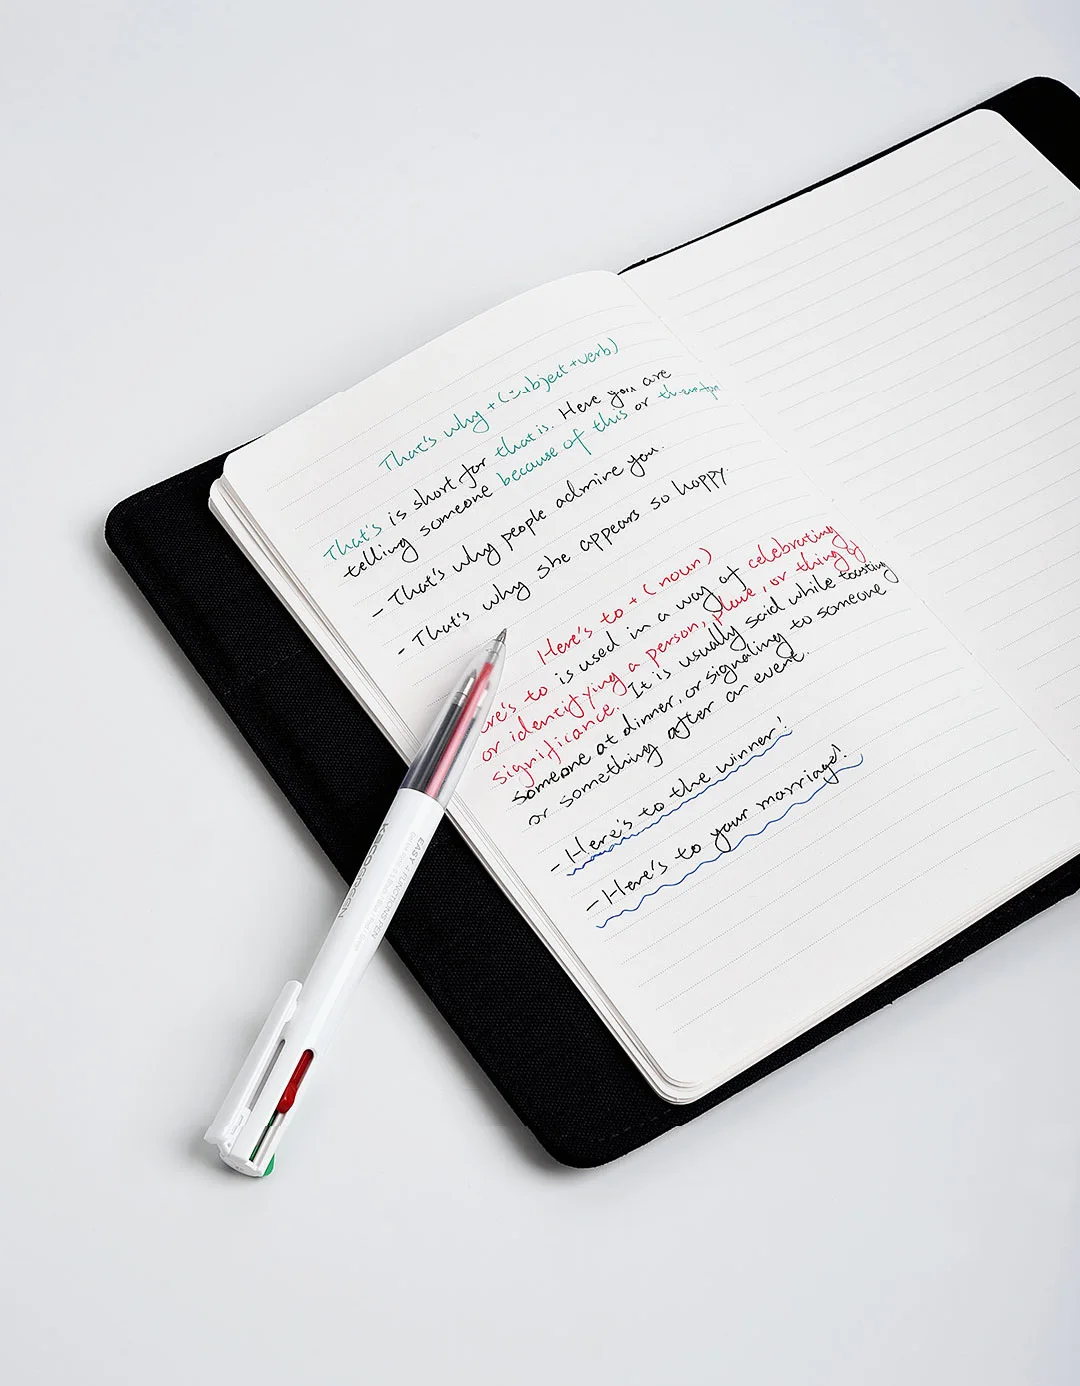 That's why + (subject + verb)
That's is short for that is. Here you are
telling someone because of this or
- That's why people admire you.
- That's why she appears so happy.
Here's to + (noun)
ere's to is used in a way of celebrating
or identifying a person, place, or thing's
significance. It is usually said while toasting
someone at dinner, or signaling to someone
or something after an event.
- Here's to the winner!
- Here's to your marriage!
KACOGREEN
EASY 4 FUNCTIONS PEN